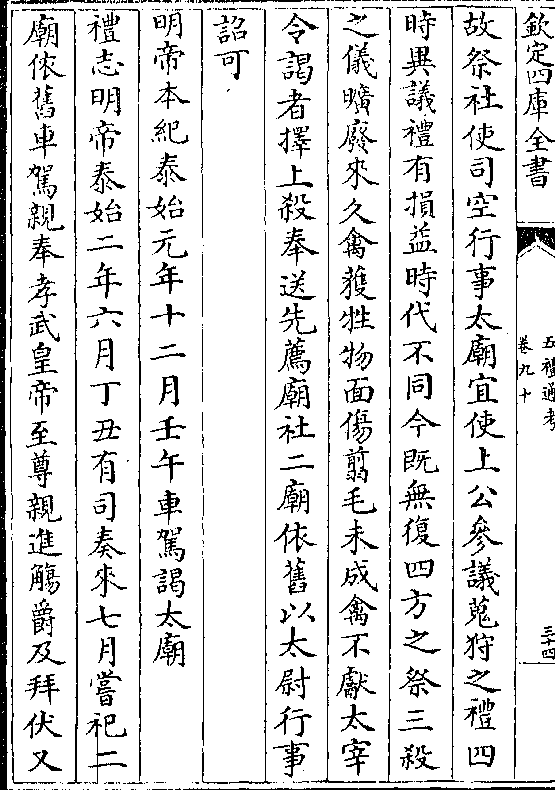 欽定四庫全書
五禮通考
卷九十
三十四
故祭社使司空行事太廟宜使上公參議蒐狩之禮四
時異議禮有損益時代不同今既無復四方之祭三殺
之儀曠廢來久禽獲牲物面傷翦毛未成禽不獻太宰
令謁者擇上殺奉送先薦廟社二廟依舊以太尉行事
詔可
明帝本紀泰始元年十二月壬午車駕謁太廟
禮志明帝泰始二年六月丁丑有司奏來七月嘗祀二
廟依舊車駕親奉孝武皇帝至尊親進觴爵及拜伏又